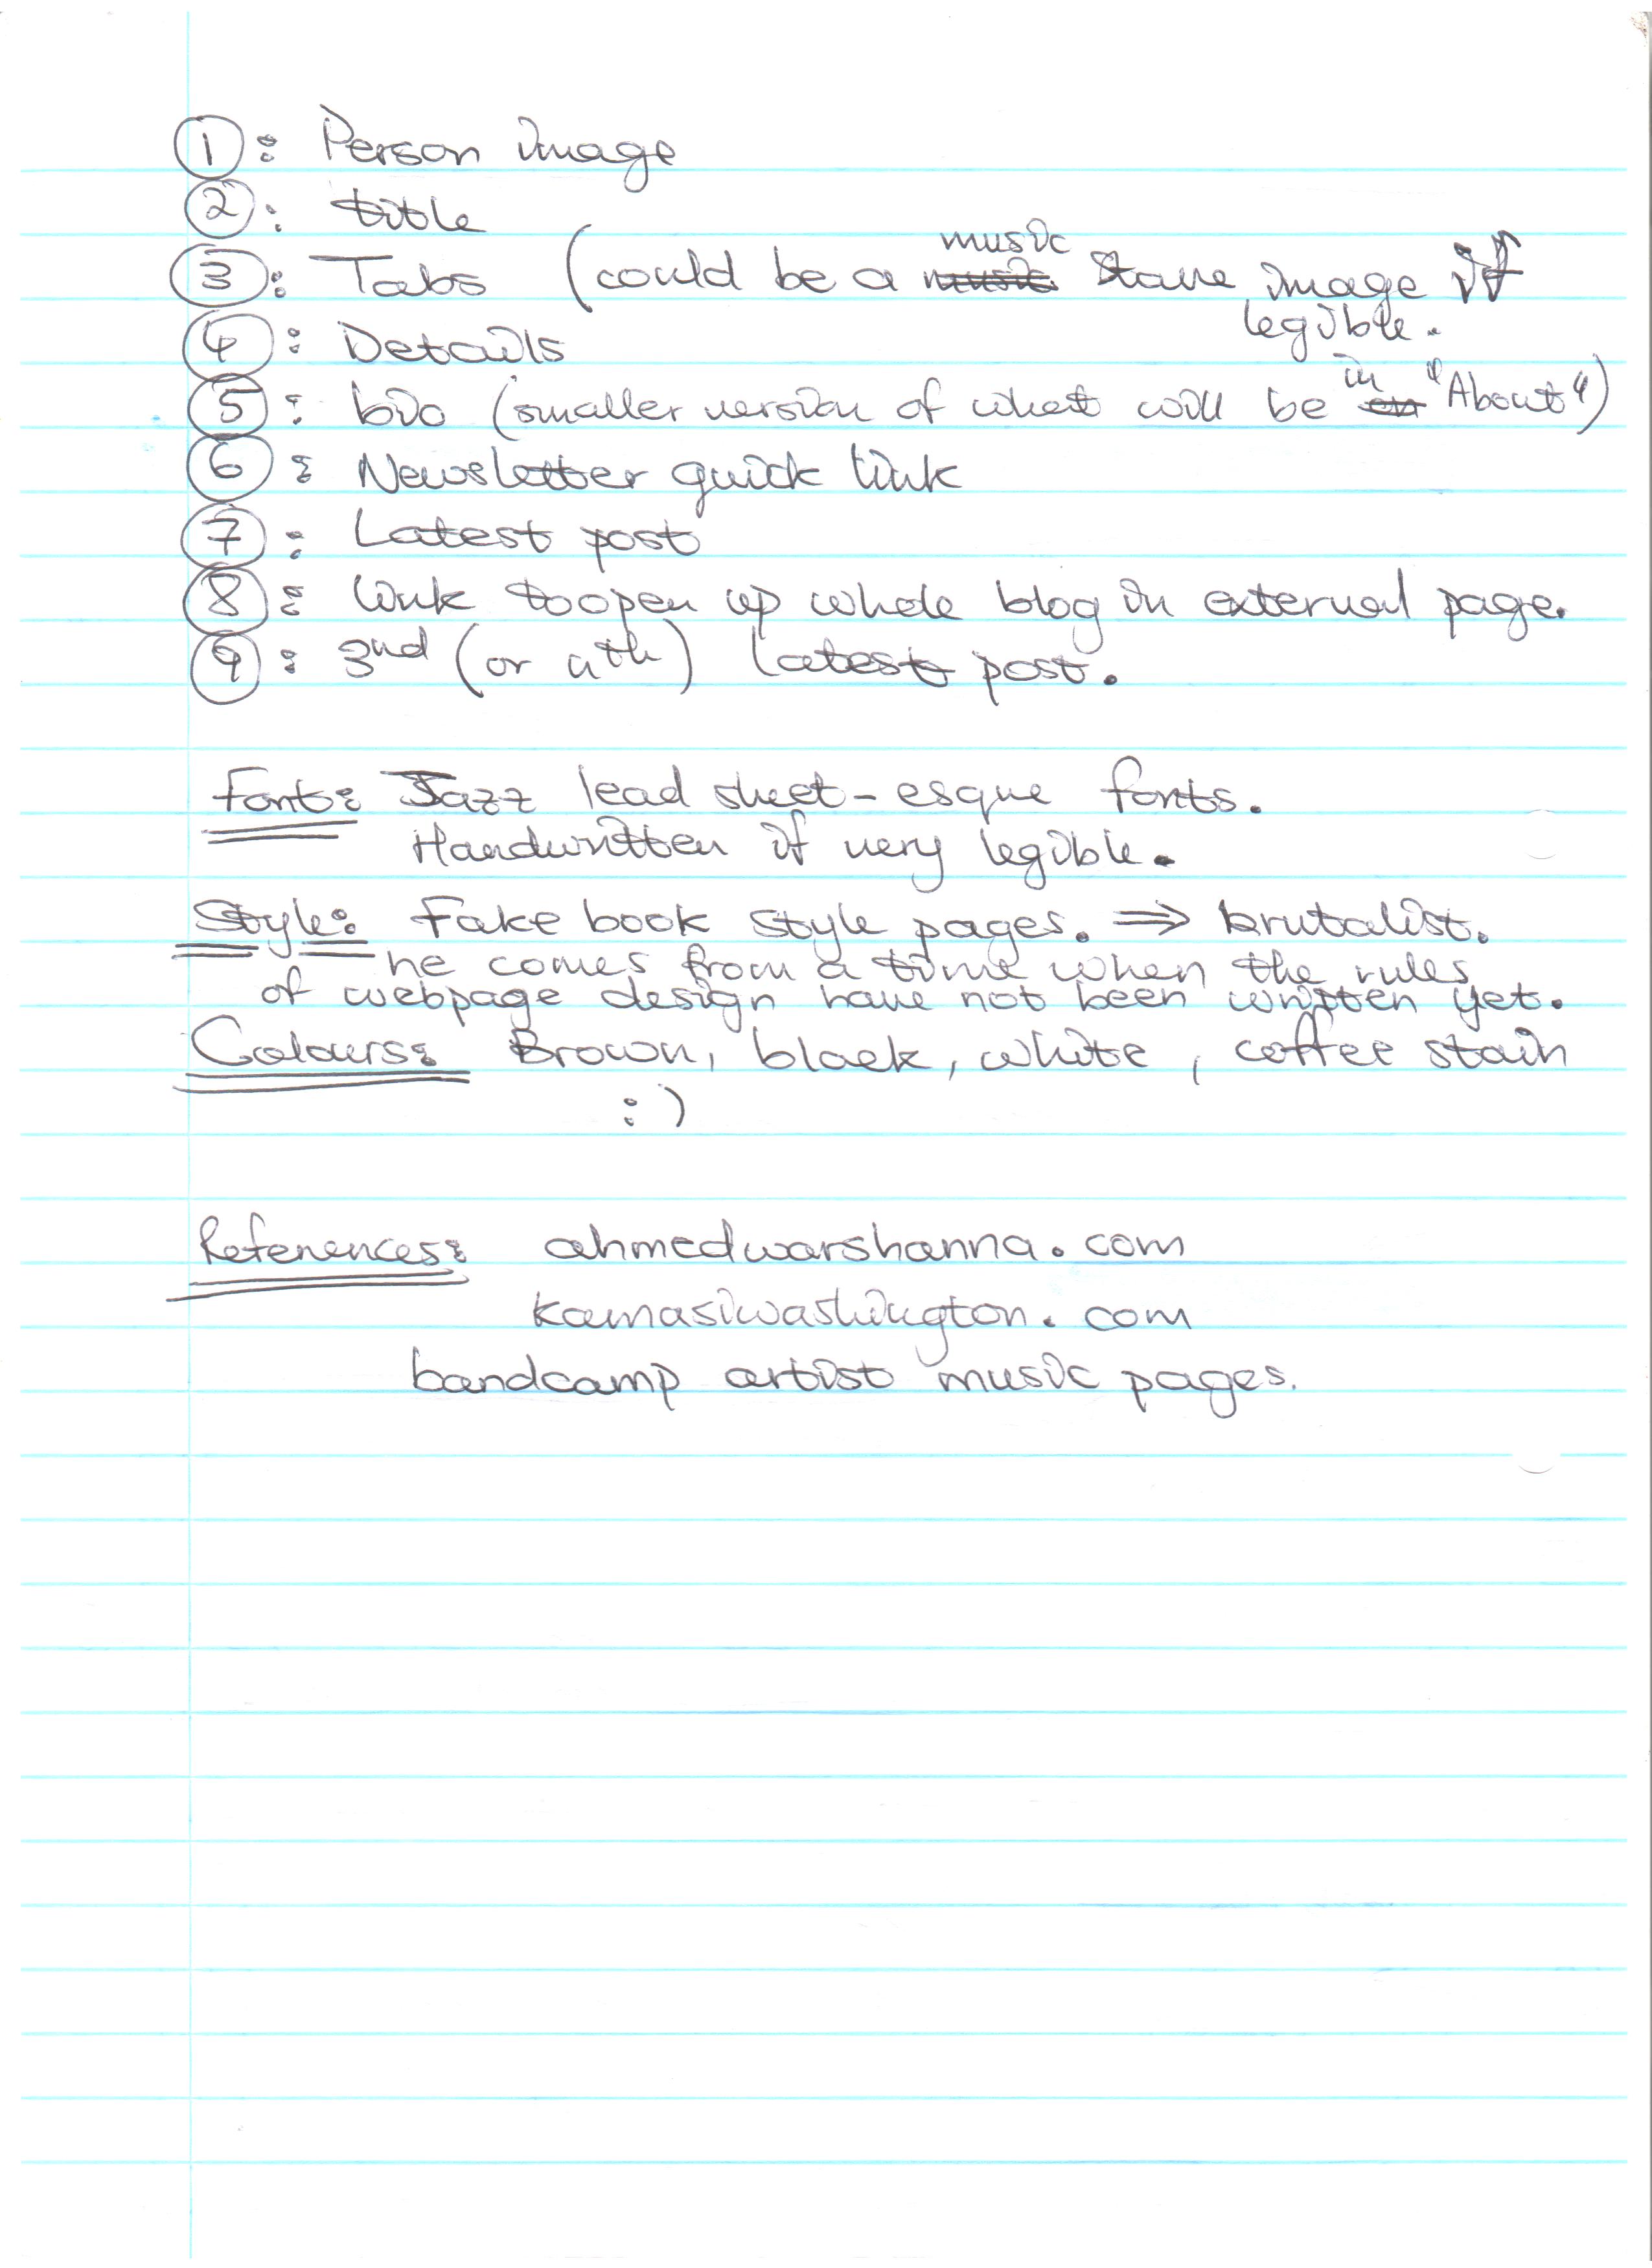 1: Person image
2: title
3: Tabs (could be a music stave image if
legible.
4: Details
5: bio (smaller version of what will be in "About")
6: Newsletter quick link
7: Latest post
8: link to open up whole blog in external page.
9: 3nd (or nth) latest post.
Font: Jazz lead sheet-esque fonts.
Handwritten if very legible.
Style: Fake book style pages. ⇒ brutalist.
he comes from a time when the rules
of webpage design have not been written yet.
Colours: Brown, black, white, coffee stain
:)
References: ahmedwarshanna.com
kamasiwashington.com
bandcamp artist music pages.